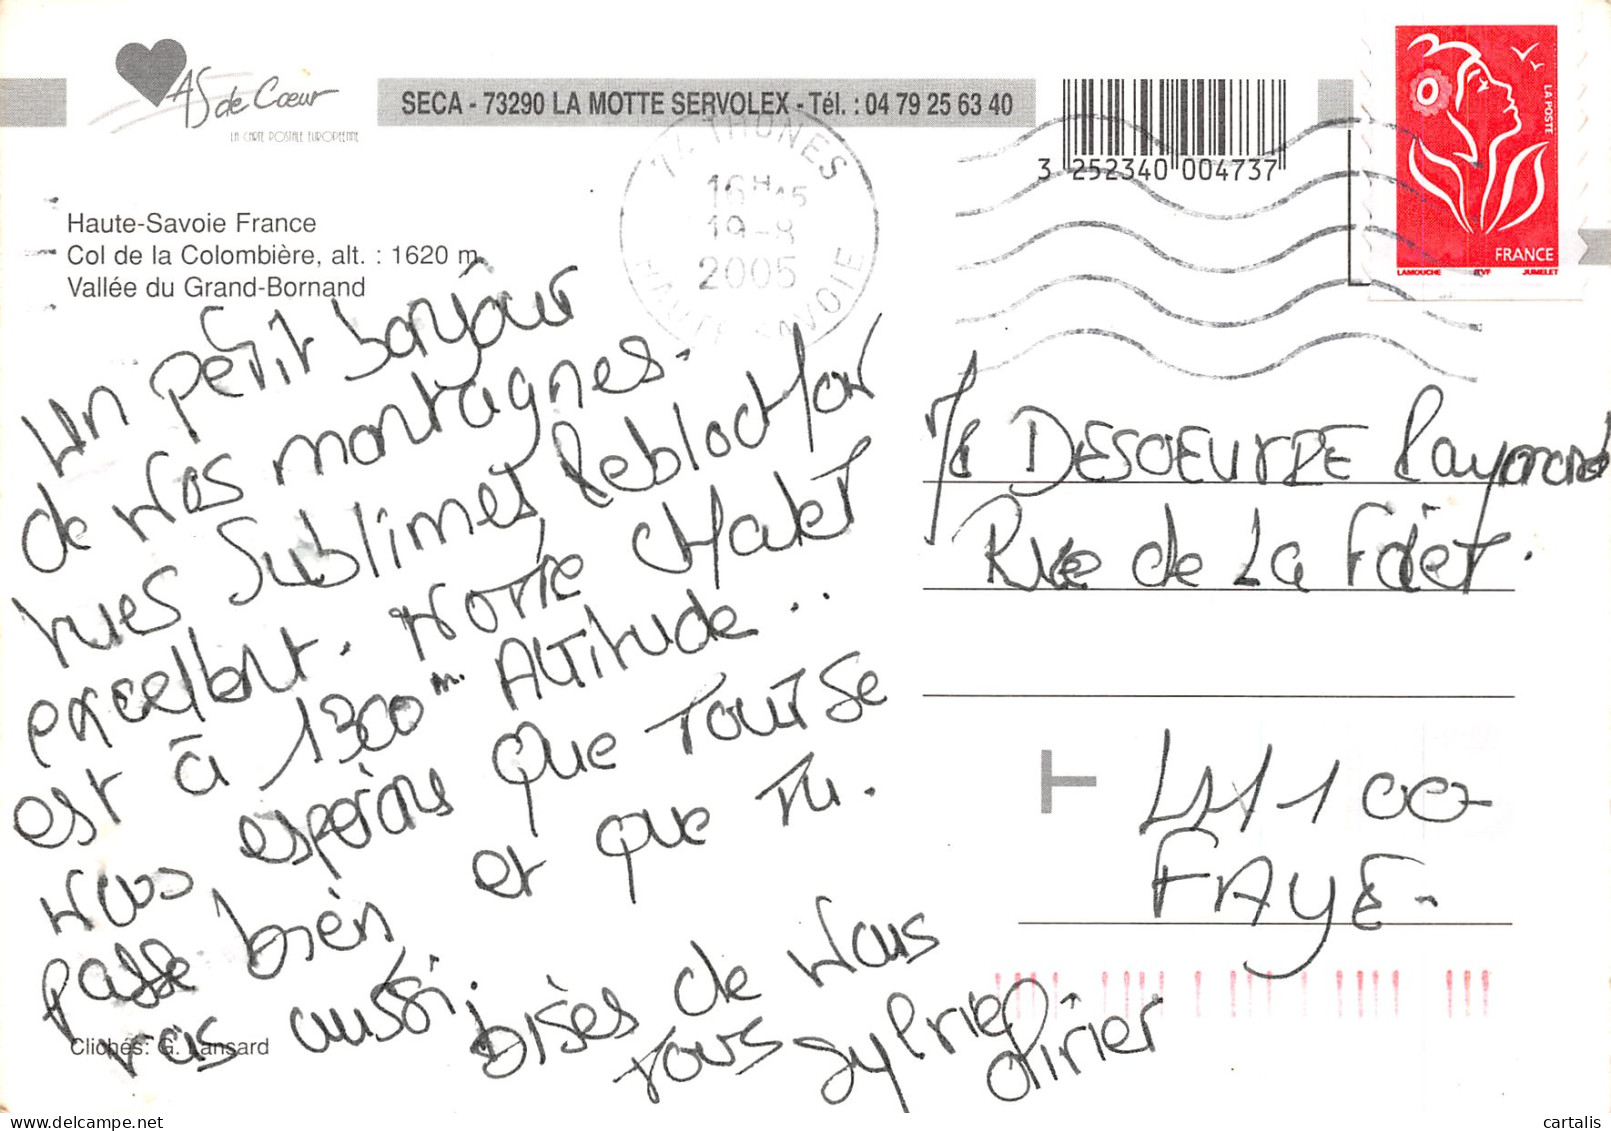 As de Cœur
LA CARTE POSTALE EUROPÉENNE
SECA - 73290 LA MOTTE SERVOLEX - Tél. : 04 79 25 63 40
3 252340 004737
LA POSTE
FRANCE
LAMOUCHE ITVF JUMELET
74 THONES
16H45
19-8
2005
HAUTE SAVOIE
Haute-Savoie France
Col de la Colombière, alt. : 1620 m
Vallée du Grand-Bornand
Un petit bonjour
de nos montagnes.
vues sublimes Reblochon
excellent. Notre chalet
est à 1300 m. Altitude...
Nous espérons que tout se
passe bien et que tu.
vas aussi.
Bises de nous
tous Sylvie
Olivier
DESOEUVRE Raymond
Rue de La Forêt.
41100
FAYE.
Clichés: G. Lansard
cartalis
delcampe.net